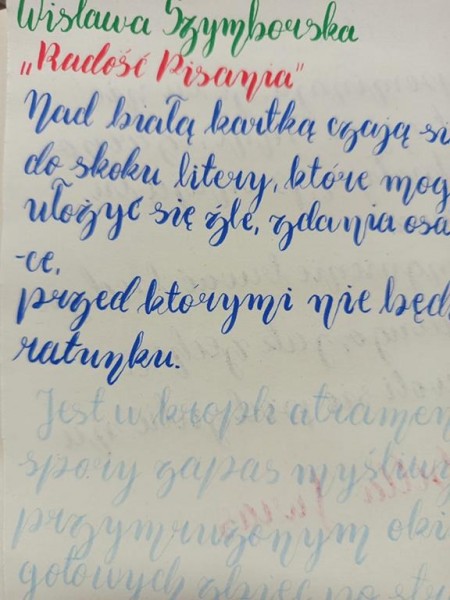 Wisława Szymborska
„Radość Pisania"
Nad białą kartką czają si
do skoku litery, które mog
ułożyć się źle, zdania osa
-ce,
przed którymi nie będ
ratunku.
Jest w kropli atramen
spory zapas myśliwy
przymrużonym oki
gotowych zbiec po st